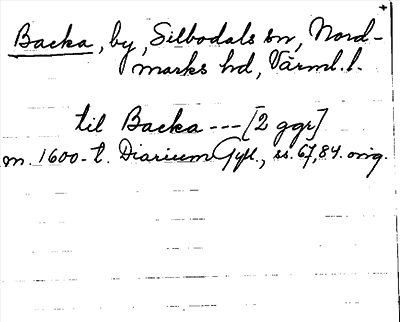 Backa, by, Silbodals sn, Nord-
marks hd, Värml. l.
til Backa --- [2 ggr]
m. 1600-t. Diarium Gyll., ss. 67, 84. orig.